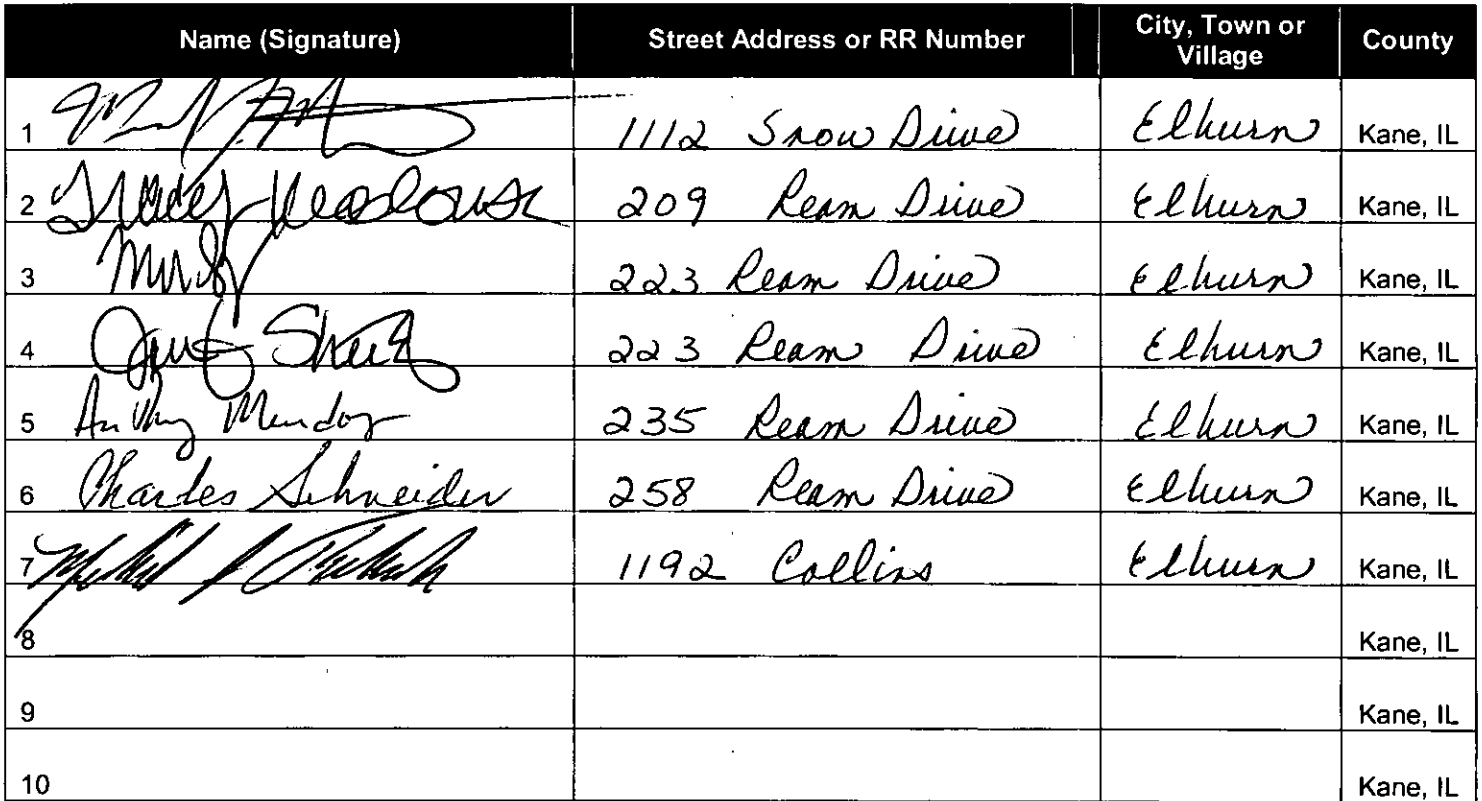 Name (Signature) Street Address or RR Number City, Town or Village County
1 1112 Snow Drive Elburn Kane, IL
2 209 Ream Drive Elburn Kane, IL
3 223 Ream Drive Elburn Kane, IL
4 223 Ream Drive Elburn Kane, IL
5 Anthony Mendoz 235 Ream Drive Elburn Kane, IL
6 Charles Schneider 258 Ream Drive Elburn Kane, IL
7 1192 Collins Elburn Kane, IL
8 Kane, IL
9 Kane, IL
10 Kane, IL